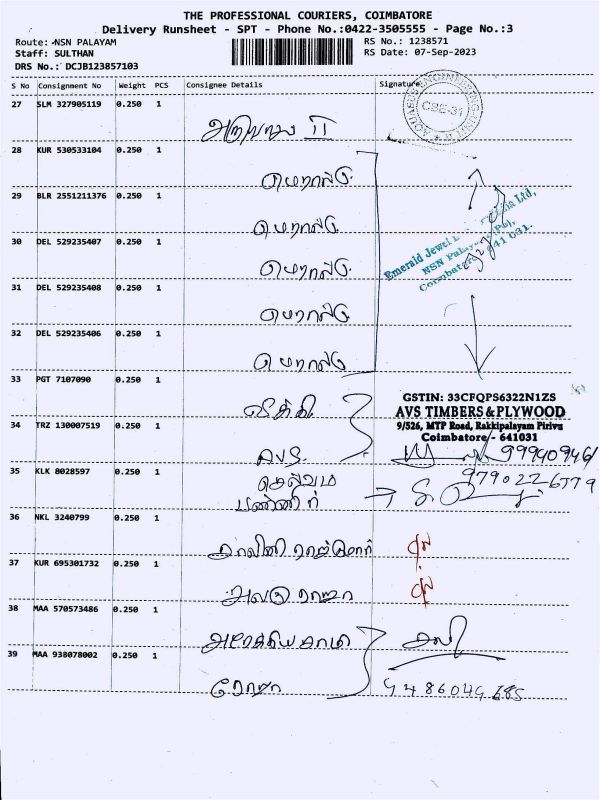 THE PROFESSIONAL COURIERS, COIMBATORE
Delivery Runsheet - SPT - Phone No.:0422-3505555 - Page No.:3
Route: NSN PALAYAM RS No.: 1238571
Staff: SULTHAN RS Date: 07-Sep-2023
DRS No.: DCJB123857103
S No Consignment No Weight PCS Consignee Details Signature
27 SLM 327905119 0.250 1
CBE-31
II
28 KUR 530533104 0.250 1
எமரால்டு
29 BLR 2551211376 0.250 1
எமரால்டு
Emerald Jewel Ltd,
NSN Palayam
Coimbatore 641 031.
30 DEL 529235407 0.250 1
எமரால்டு
31 DEL 529235408 0.250 1
எமரால்டு
32 DEL 529235406 0.250 1
எமரால்டு
33 PGT 7107090 0.250 1
GSTIN: 33CFQPS6322N1ZS
AVS TIMBERS & PLYWOOD
9/526, MTP Road, Rakkipalayam Pirivu
Coimbatore - 641031
34 TRZ 130007519 0.250 1
AVS.
35 KLK 8028597 0.250 1
செல்வம்
பன்னீர்
9790226779
36 NKL 3240799 0.250 1
37 KUR 695301732 0.250 1
ராஜா
38 MAA 570573486 0.250 1
39 MAA 938078002 0.250 1
ரோஜா 9486049685